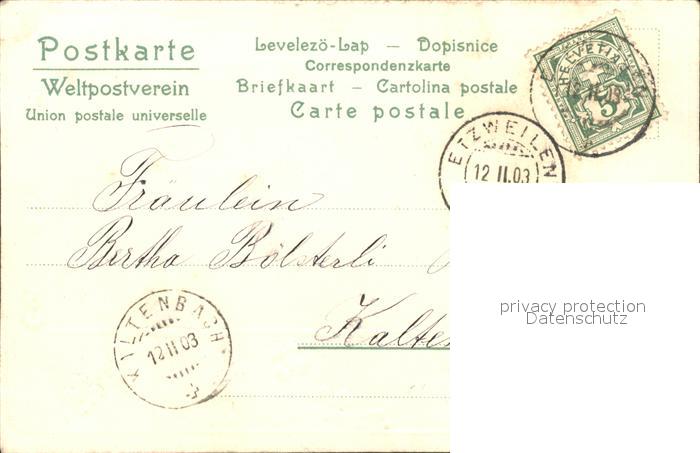 Postkarte
Weltpostverein
Union postale universelle
Levelezö-Lap — Dopisnice
Correspondenzkarte
Briefkaart — Cartolina postale
Carte postale
HELVETIA
5
ETZWEILEN
12 II.03
Fräulein
Bertha Bölsterli
Kalten
KALTENBACH
12 II 03
privacy protection
Datenschutz